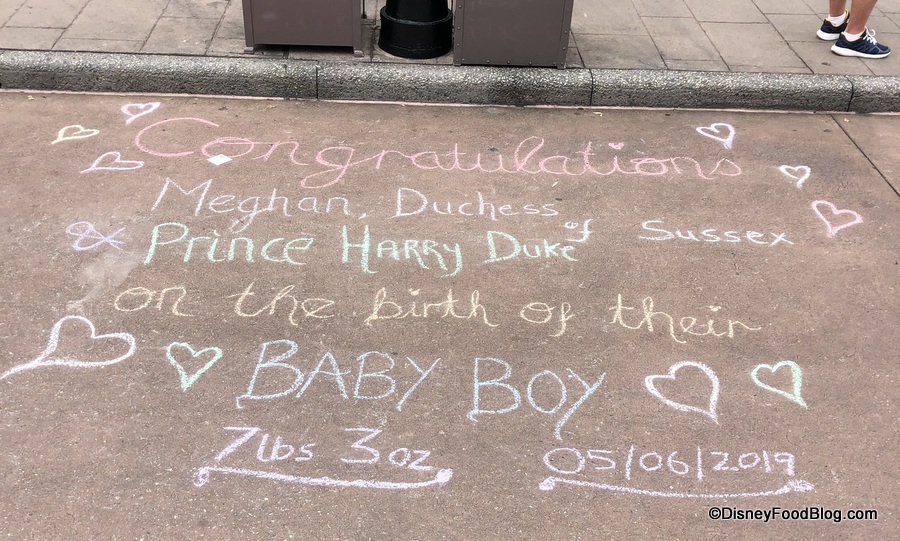 Congratulations
Meghan, Duchess
Prince Harry Duke of Sussex
on the birth of their
BABY BOY
7lbs 3oz 05/06/2019
©DisneyFoodBlog.com